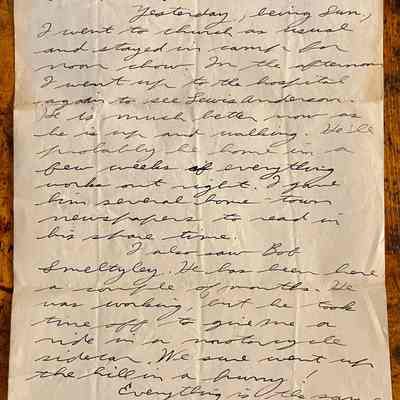 Yesterday, being Sun,
I went to church as usual
and stayed in camp for
noon chow. In the afternoon
I went up to the hospital
again to see Lewis Anderson.
He is much better now as
he is up and walking. He'll
probably be home in a
few weeks if everything
works out right. I gave
him several home town
newspapers to read in
his spare time.
I also saw Bob
Smeltyley. He has been here
a couple of months. He
was working, but he took
time off to give me a
ride in a motorcycle
sidecar. We sure went up
the hill in a hurry!
Everything is the same